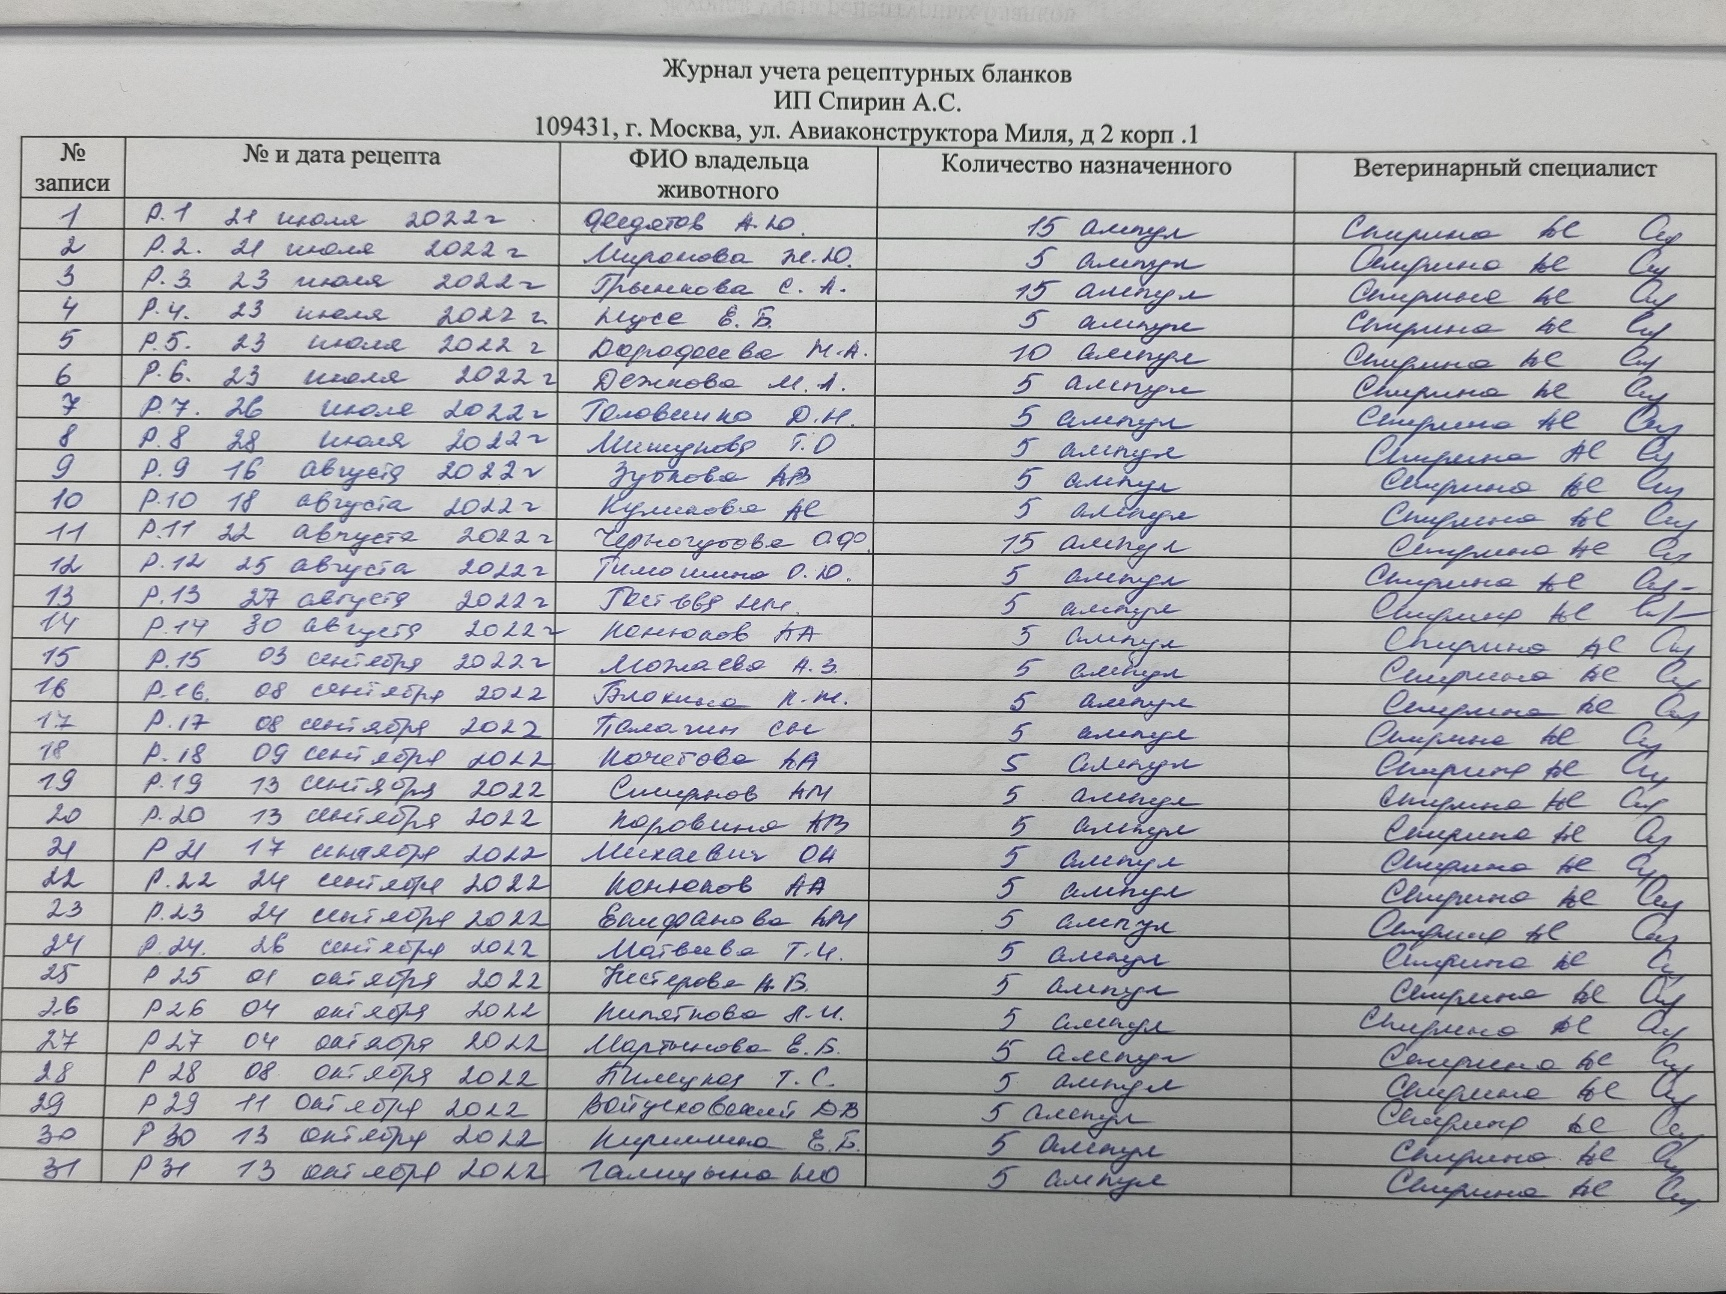 Журнал учета рецептурных бланков
ИП Спирин А.С.
109431, г. Москва, ул. Авиаконструктора Миля, д 2 корп .1
№ записи № и дата рецепта ФИО владельца животного Количество назначенного Ветеринарный специалист
1 Р.1 21 июля 2022г А.Ю. 15 ампул Спирина АС
2 Р.2. 21 июля 2022г Миронова Ж.Ю. 5 ампул Спирина АС
3 Р.3 23 июля 2022г Грынкова С.А. 15 ампул Спирина АС
4 Р.4. 23 июля 2022г. Е.Б. 5 ампул Спирина АС
5 Р.5. 23 июля 2022г Дорофеева Н.А. 10 ампул Спирина АС
6 Р.6. 23 июля 2022г Дежнова М.А. 5 ампул Спирина АС
7 Р.7. 26 июля 2022г Головинко Д.Н. 5 ампул Спирина АС
8 Р.8 28 июля 2022г Мишукова Т.О 5 ампул Спирина АС
9 Р.9 16 августа 2022г Зубкова АВ 5 ампул Спирина АС
10 Р.10 18 августа 2022г Куликова АС 5 ампул Спирина АС
11 Р.11 22 августа 2022г Черногубова О.Ф. 15 ампул Спирина АС
12 Р.12 25 августа 2022г Тимошина О.Ю. 5 ампул Спирина АС
13 Р.13 27 августа 2022г 5 ампул Спирина АС
14 Р.14 30 августа 2022г Конюхов АА 5 ампул Спирина АС
15 Р.15 03 сентября 2022г Можаева А.З. 5 ампул Спирина АС
16 Р.16. 08 сентября 2022 Блохина 5 ампул Спирина АС
17 Р.17 08 сентября 2022 5 ампул Спирина АС
18 Р.18 09 сентября 2022 Кочетова АА 5 ампул Спирина АС
19 Р.19 13 сентября 2022 Смирнов АМ 5 ампул Спирина АС
20 Р.20 13 сентября 2022 Коровина АВ 5 ампул Спирина АС
21 Р 21 17 сентября 2022 Михаевич ОН 5 ампул Спирина АС
22 Р.22 24 сентября 2022 Конюхов АА 5 ампул Спирина АС
23 Р.23 24 сентября 2022 Епифанова АМ 5 ампул Спирина АС
24 Р.24. 26 сентября 2022 Матвеева Т.И. 5 ампул Спирина АС
25 Р 25 01 октября 2022 Нестерова А.Б. 5 ампул Спирина АС
26 Р 26 04 октября 2022 Кипяткова Л.И. 5 ампул Спирина АС
27 Р 27 04 октября 2022 Мартынова Е.Б. 5 ампул Спирина АС
28 Р 28 08 октября 2022 Т.С. 5 ампул Спирина АС
29 Р 29 11 октября 2022 Войцеховский ДВ 5 ампул Спирина АС
30 Р 30 13 октября 2022 Кирилина Е.Б. 5 ампул Спирина АС
31 Р 31 13 октября 2022 Галицына 5 ампул Спирина АС